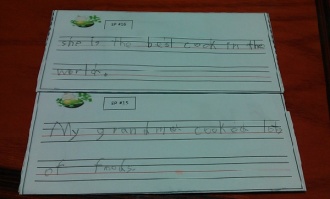 SP #16
she is the best cook in the
world.
SP #15
My grandma cooked lots
of foods